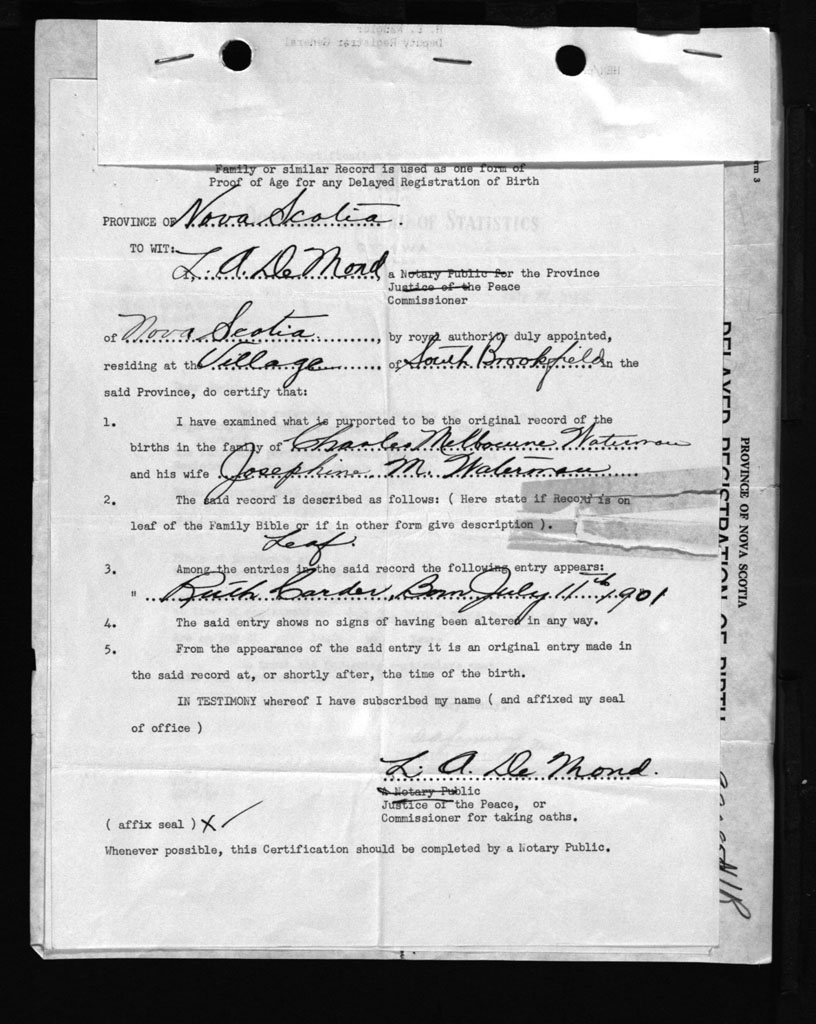 Family or similar Record is used as one form of
Proof of Age for any Delayed Registration of Birth
PROVINCE OF Nova Scotia.
TO WIT:
I, L. A. De Mond a Notary Public for the Province
Justice of the Peace
Commissioner
of Nova Scotia, by royal authority duly appointed,
residing at the Village of South Brookfield in the
said Province, do certify that:
1. I have examined what is purported to be the original record of the
births in the family of Charles Melbourne Waterman
and his wife Josephine M. Waterman
2. The said record is described as follows: ( Here state if Record is on
leaf of the Family Bible or if in other form give description ).
Leaf.
3. Among the entries in the said record the following entry appears:
" Ruth Carder, Born July 11th 1901
4. The said entry shows no signs of having been altered in any way.
5. From the appearance of the said entry it is an original entry made in
the said record at, or shortly after, the time of the birth.
IN TESTIMONY whereof I have subscribed my name ( and affixed my seal
of office )
L. A. De Mond.
A Notary Public
Justice of the Peace, or
Commissioner for taking oaths.
( affix seal ) X
Whenever possible, this Certification should be completed by a Notary Public.
PROVINCE OF NOVA SCOTIA
DELAYED REGISTRATION OF BIRTH
Deputy Registrar General
OF STATISTICS